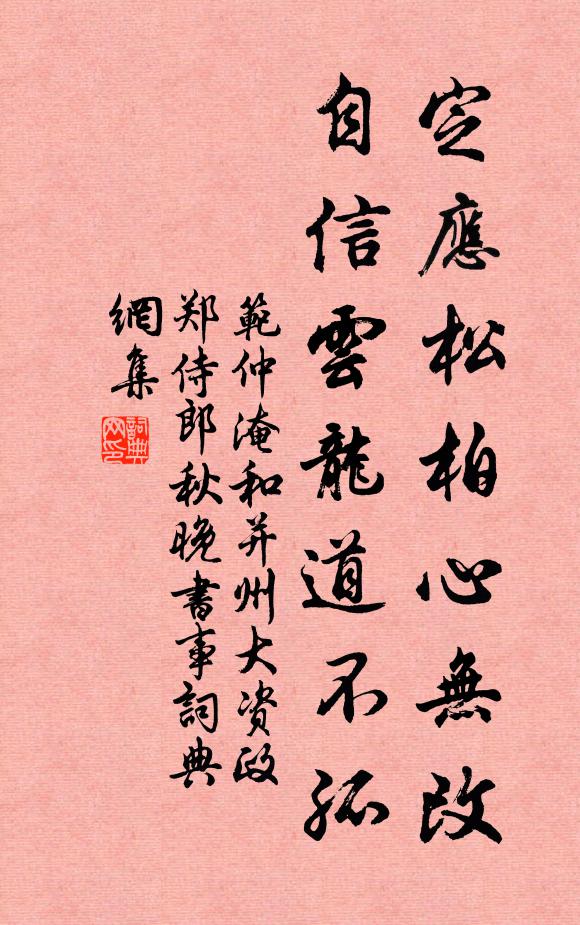 定應松柏心無改
自信雲龍道不孤
範仲淹和并州大資政
郑侍郎秋晚書事詞典
網集
詞典
网印